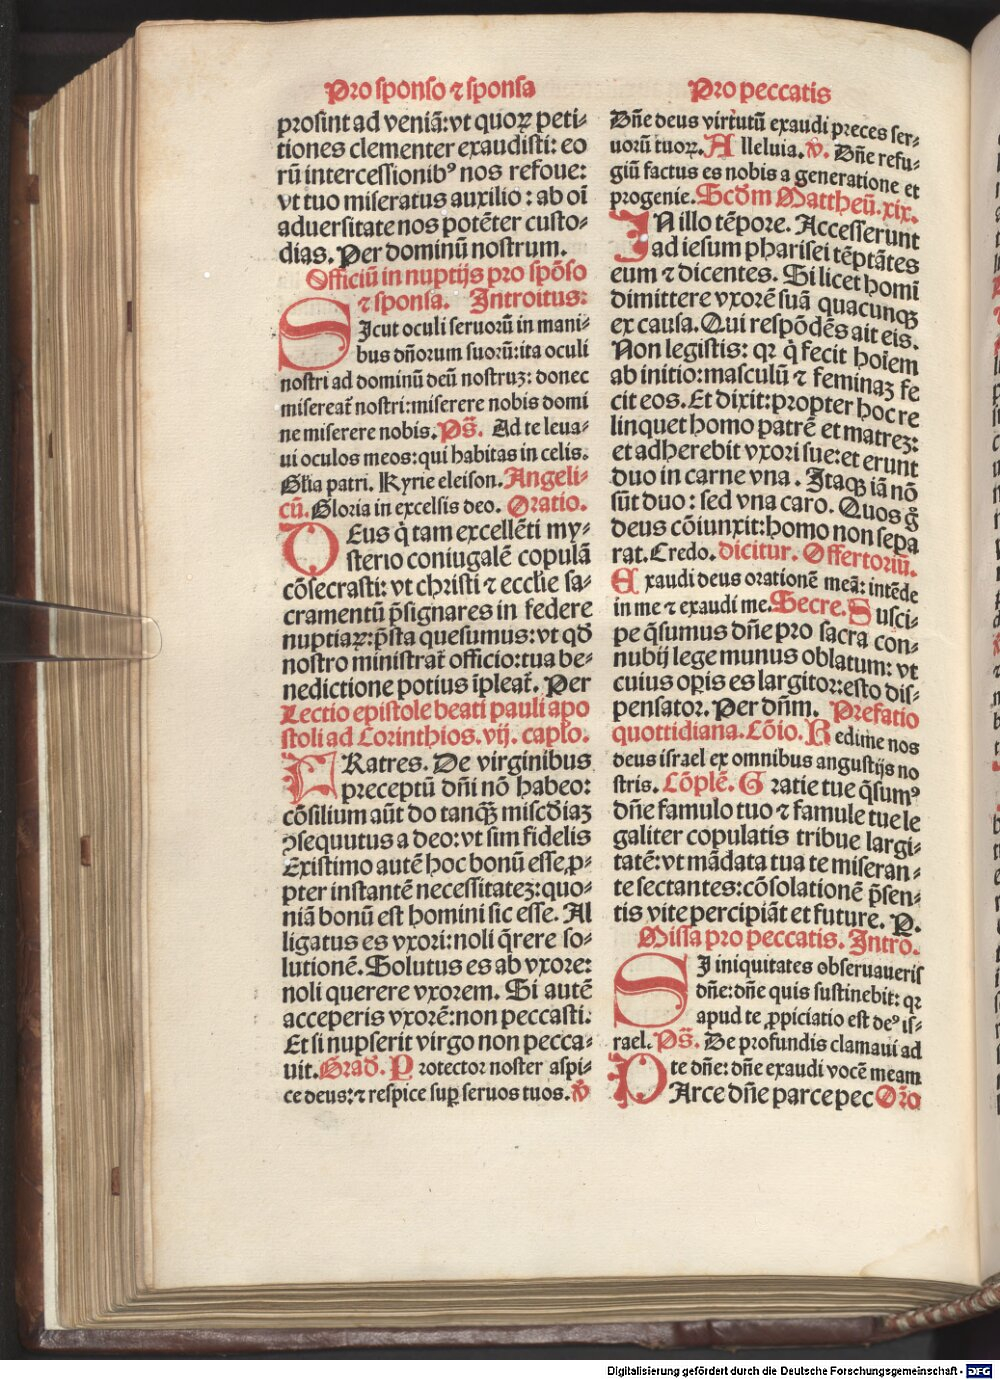 Pro sponso ⁊ sponsa
prosint ad veniã: vt quoꝝ peti-
tiones clementer exaudisti: eo
rũ intercessionibꝰ nos refoue:
vt tuo miseratus auxilio: ab oĩ
aduersitate nos potẽter custo-
dias. Per dominũ nostrum.
Officiũ in nuptijs pro spõso
⁊ sponsa. Introitus:
SIcut oculi seruorũ in mani-
bus dñorum suorũ: ita oculi
nostri ad dominũ deũ nostruꝫ: donec
misereat̃ nostri: miserere nobis domi
ne miserere nobis. Ps̃. Ad te leua-
ui oculos meos: qui habitas in celis.
Gl̃ia patri. Kyrie eleison. Angeli-
cũ. Gloria in excelsis deo. Oratio.
DEus q̇ tam excellẽti my-
sterio coniugalẽ copulã
cõsecrasti: vt christi ⁊ eccl̃ie sa-
cramentũ p̃signares in federe
nuptiaꝝ: p̃sta quesumus: vt qd̃
nostro ministrat̃ officio: tua be-
nedictione potius ĩpleat̃. Per
Lectio epistole beati pauli apo
stoli ad Corinthios. vij. capl̃o.
FRatres. De virginibus
preceptũ dñi nõ habeo:
cõsilium aũt do tanqꝫ̃ mis̃cdiaꝫ
ꝯsequutus a deo: vt sim fidelis
Existimo autẽ hoc bonũ esse, ꝓ-
pter instantẽ necessitateꝫ: quo-
niã bonũ est homini sic esse. Al
ligatus es vxori: noli q̃rere so-
lutionẽ. Solutus es ab vxore:
noli querere vxorem. Si autẽ
acceperis vxorẽ: non peccasti.
Et si nupserit virgo non pecca-
uit. Grad̃. Protector noster aspi-
ce deus: ⁊ respice suꝑ seruos tuos. ℣
Pro peccatis
Dñe deus virtutũ exaudi preces ser-
uorũ tuoꝝ. Alleluia. ℣. Dñe refu-
giũ factus es nobis a generatione et
progenie. Scd̃m Mattheũ. xix.
IN illo tẽpore. Accesserunt
ad iesum pharisei tẽptãtes
eum ⁊ dicentes. Si licet homĩ
dimittere vxorẽ suã quacunqꝫ
ex causa. Qui respõdẽs ait eis.
Non legistis: qꝛ q̇ fecit hoĩem
ab initio: masculũ ⁊ feminaꝫ fe
cit eos. Et dixit: propter hoc re
linquet homo patrẽ et matreꝫ:
et adherebit vxori sue: et erunt
duo in carne vna. Itaqꝫ iã nõ
sũt duo: sed vna caro. Quos g̊
deus cõiunxit: homo non sepa
rat. Credo. dicitur. Offertoriũ.
Exaudi deus orationẽ meã: intẽde
in me ⁊ exaudi me. Secre. Susci-
pe q̃sumus dñe pro sacra con-
nubij lege munus oblatum: vt
cuius oꝑis es largitor: esto dis-
pensator. Per dñm. Prefatio
quottidiana. Cõio. Redime nos
deus israel ex omnibus angustijs no
stris. Cõplẽ. Gratie tue q̃sumꝰ
dñe famulo tuo ⁊ famule tue le
galiter copulatis tribue largi-
tatẽ: vt mãdata tua te miseran-
te sectantes: cõsolationẽ p̃sen-
tis vite percipiãt et future. P.
Missa pro peccatis. Intro.
SI iniquitates obseruaueris
dñe: dñe quis sustinebit: qꝛ
apud te ꝓpiciatio est deꝰ is-
rael. Ps̃. De profundis clamaui ad
te dñe: dñe exaudi vocẽ meam
PArce dñe parce pec Or̃o
Digitalisierung gefördert durch die Deutsche Forschungsgemeinschaft - DFG